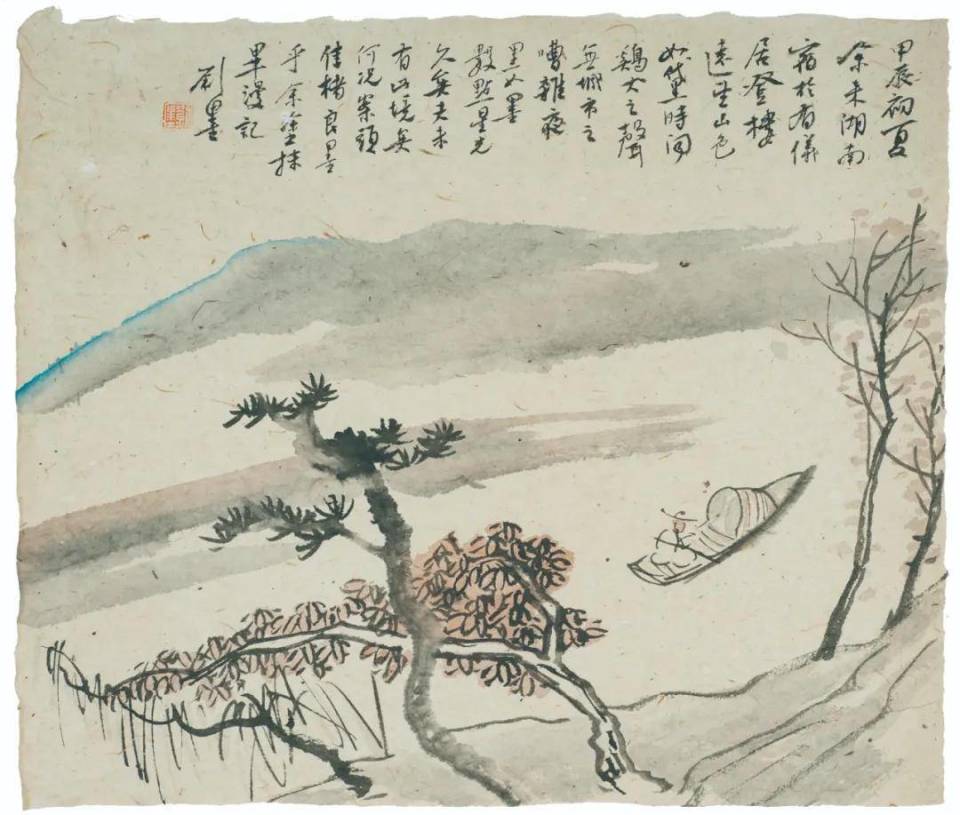 甲辰初夏
余来湖南
宿於有儀
居登樓
遠望山色
如黛時聞
鷄犬之聲
無城市之
嘈雜夜
黑如墨
數點星光
久矣夫未
有此境矣
何況案頭
佳楮良墨
乎余塗抹
畢漫記
刘墨